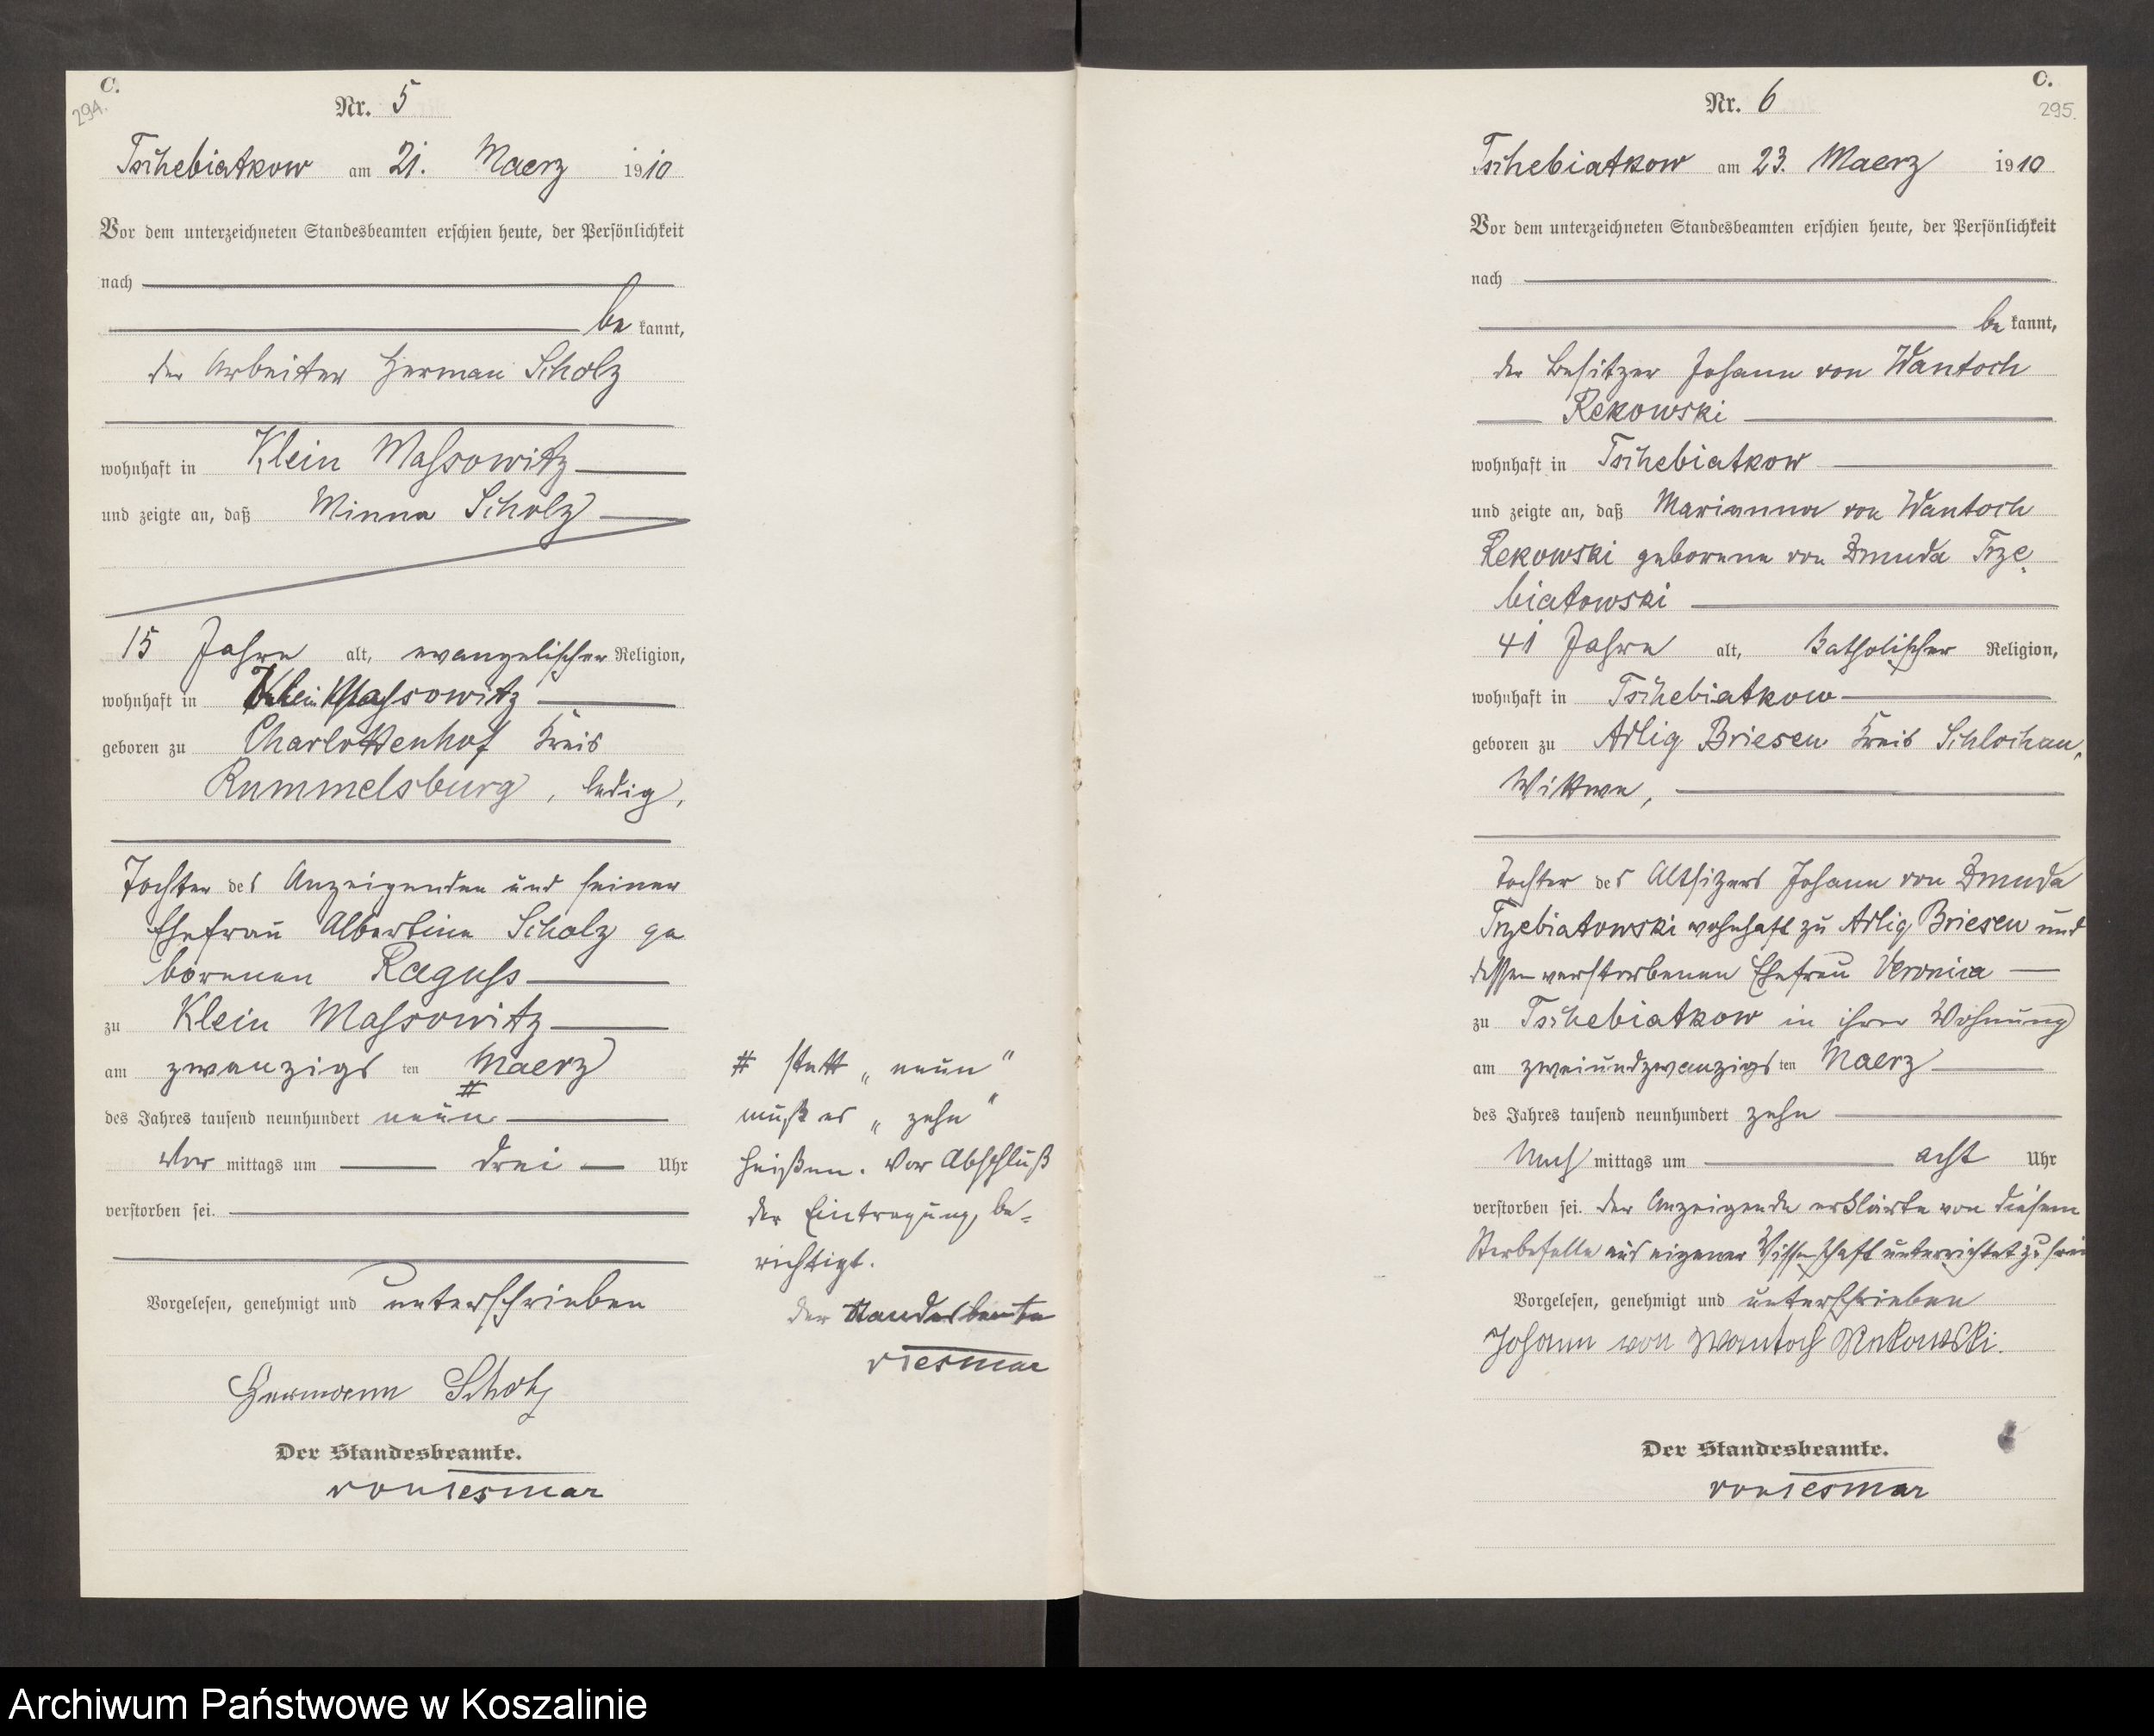 C.
294.
Nr. 5
Tschebiatkow am 21. Maerz 1910
Vor dem unterzeichneten Standesbeamten erschien heute, der Persönlichkeit
nach
be kannt,
der Arbeiter Herman Scholz
wohnhaft in Klein Massowitz
und zeigte an, daß Minna Scholz
15 Jahre alt, evangelischer Religion,
wohnhaft in Klein Massowitz
geboren zu Charlottenhof Kreis
Rummelsburg, ledig,
Tochter des Anzeigenden und seiner
Ehefrau Albertine Scholz ge
borenen Raguss
zu Klein Massowitz
am zwanzigs ten Maerz
#
des Jahres tausend neunhundert neun
Vor mittags um drei Uhr
verstorben sei.
Vorgelesen, genehmigt und unterschrieben
Hermann Scholz
Der Standesbeamte.
von Tesmar
# statt „neun"
muß es „zehn"
heißen. Vor Abschluß
der Eintragung be-
richtigt.
Der Standesbeamte
v Tesmar
C.
295.
Nr. 6
Tschebiatkow am 23. Maerz 1910
Vor dem unterzeichneten Standesbeamten erschien heute, der Persönlichkeit
nach
be kannt,
der Besitzer Johann von Wantoch
Rekowski
wohnhaft in Tschebiatkow
und zeigte an, daß Marianna von Wantoch
Rekowski geborene von Zmuda Trze
biatowski
41 Jahre alt, katholischer Religion,
wohnhaft in Tschebiatkow
geboren zu Adlig Briesen Kreis Schlochau,
Wittwe,
Tochter des Altsitzers Johann von Zmuda
Trzebiatowski wohnhaft zu Adlig Briesen und
dessen verstorbenen Ehefrau Veronica
zu Tschebiatkow in ihrer Wohnung
am zweiundzwanzigs ten Maerz
des Jahres tausend neunhundert zehn
Nach mittags um acht Uhr
verstorben sei. Der Anzeigende erklärte von diesem
Sterbefalle aus eigener Wissenschaft unterrichtet zu sein
Vorgelesen, genehmigt und unterschrieben
Johann von Wantoch Rekowski.
Der Standesbeamte.
von Tesmar
Archiwum Państwowe w Koszalinie